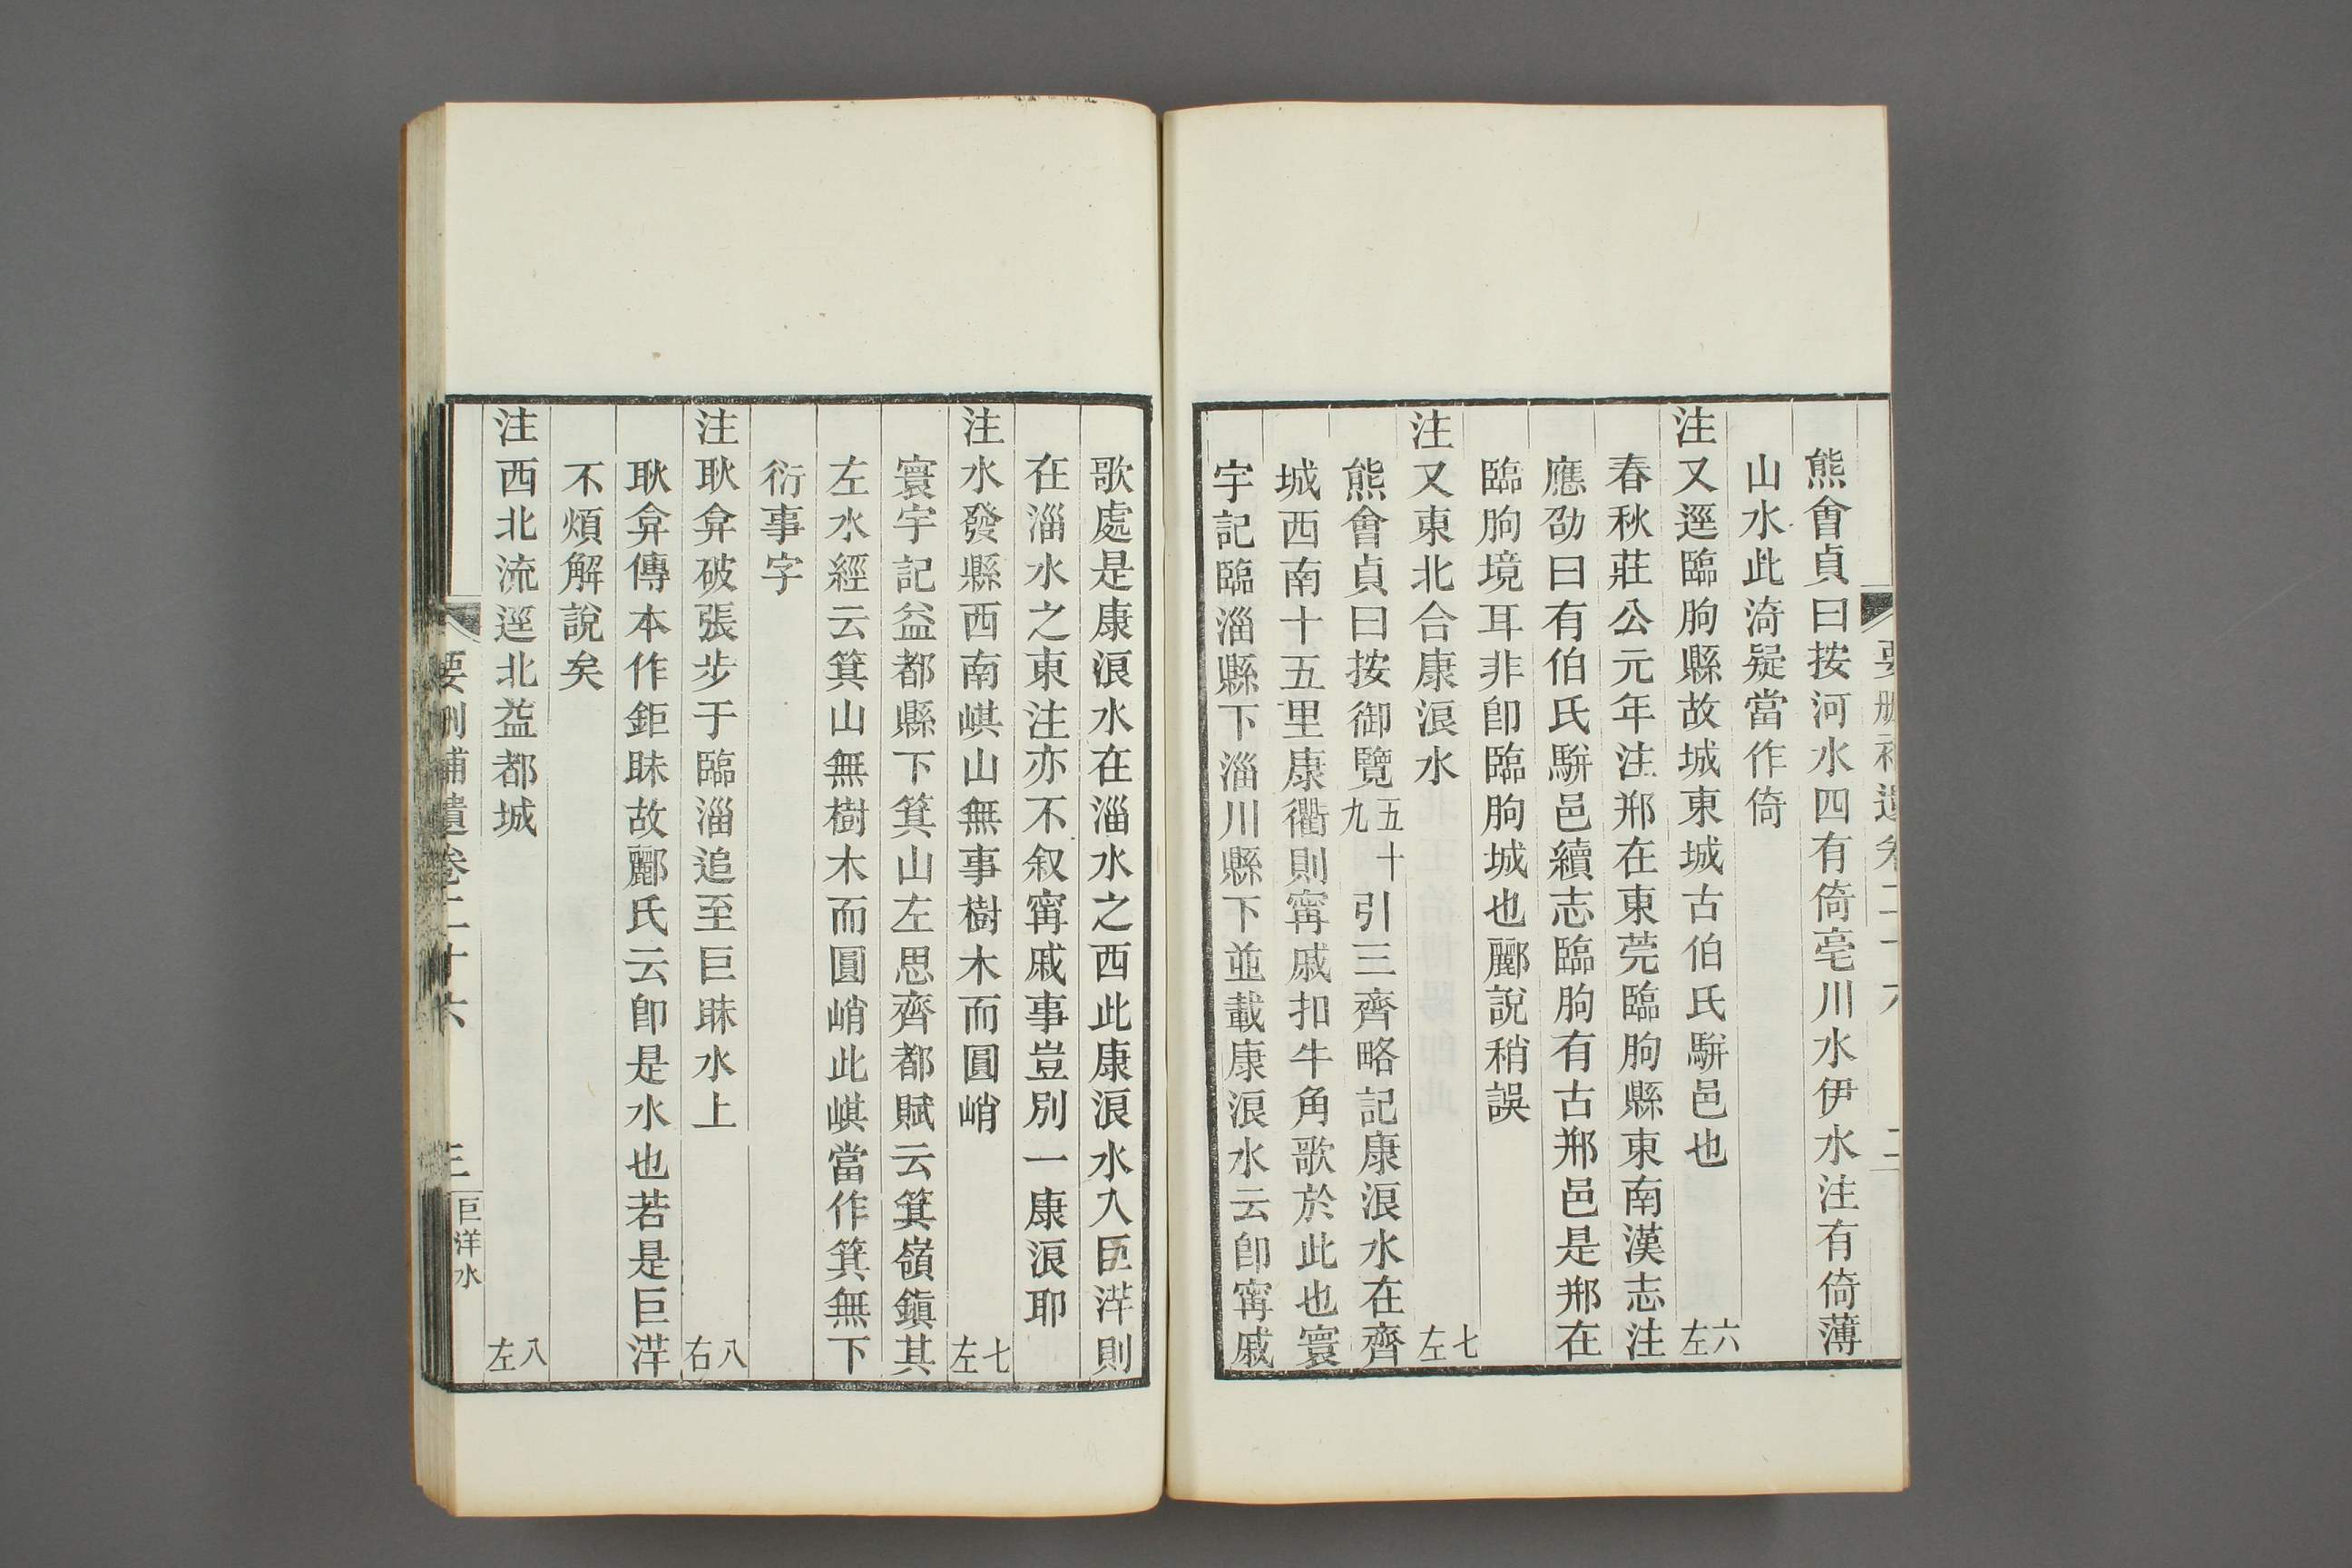 熊會貞曰按河水四有倚亳川水伊水注有倚薄
山水此漪疑當作倚
注又逕臨朐縣故城東城古伯氏駢邑也 六左
春秋莊公元年注郱在東莞臨朐縣東南漢志注
應劭曰有伯氏駢邑續志臨朐有古郱邑是郱在
臨朐境耳非卽臨朐城也酈說稍誤
注又東北合康浪水 七左
熊會貞曰按御覽五十九引三齊略記康浪水在齊
城西南十五里康衢則甯戚扣牛角歌於此也寰
宇記臨淄縣下淄川縣下並載康浪水云卽甯戚
歌處是康浪水在淄水之西此康浪水入巨洋則
在淄水之東注亦不叙甯戚事豈別一康浪耶
注水發縣西南㟓山無事樹木而圓峭 七左
寰宇記益都縣下箕山左思齊都賦云箕嶺鎭其
左水經云箕山無樹木而圓峭此㟓當作箕無下
衍事字
注耿弇破張步于臨淄追至巨昧水上 八右
耿弇傳本作鉅昧故酈氏云卽是水也若是巨洋
不煩解說矣
注西北流逕北益都城 八左
要刪補遺卷二十六 三 巨洋水